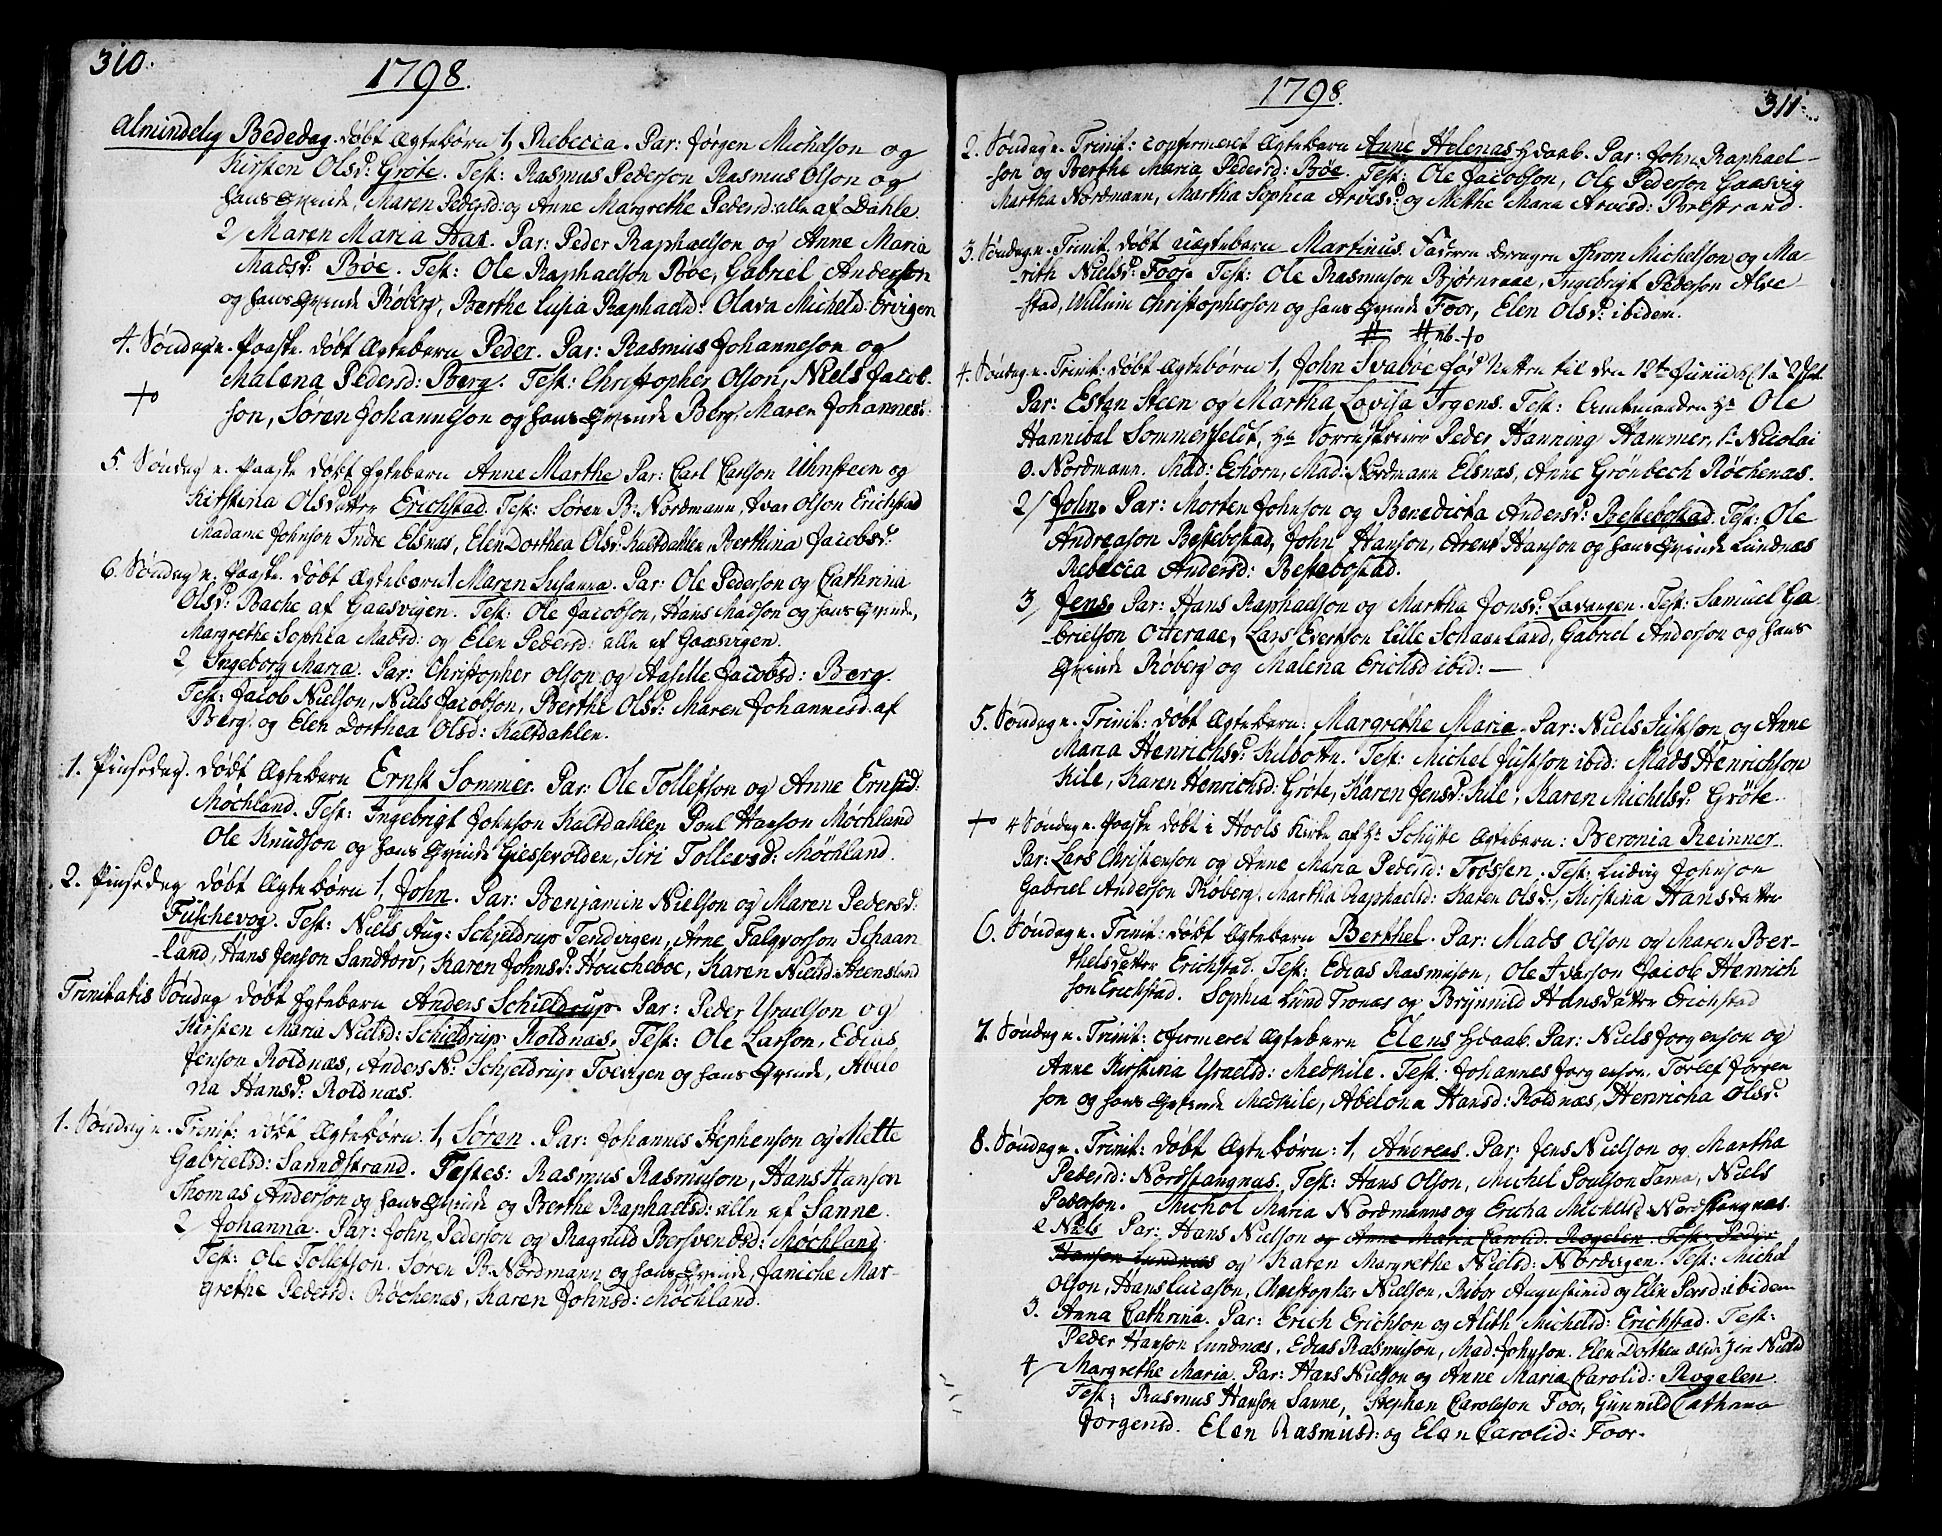 310.
1798.
Almindelig Bededag. døbt Ægtebørn 1, Rebecca. Par: Jørgen Michelson og
Kirsten Olsd: Grøte. Test: Rasmus Pederson Rasmus Olson og
hans Qvinde, Maren Pedersd: og Anne Margrethe Pedersd: alle af Dahle.
2/ Maren Maria Hax. Par: Peder Raphaelson og Anne Maria
Madsd: Bøe. Test: Ole Raphaelson Bøe, Gabriel Anderson
og hans Qvinde Røberg, Berthe Lusia Raphaelsd: Olava Michelsd.
4. Søndag n. Paaske. døbt Ægtebarn Peder. Par: Rasmus Johanneson og
Malena Pedersd: Berg. Test: Christopher Olson, Niels Jacob-
son, Søren Johanneson og hans Qvinde Berg. Maren Johannesd:
5. Søndag n. Paaske døbt Egtebarn Anne Marthe Par: Carl Carlson Uhnsteen og
Kirstina Olsdatter Erichstad. Test: Søren B: Nordmann, Ivar Olson Erichstad
Madame Johnson Indre Elsnæs, Elen Dorthea Olsd: Kaltdahlen, Berthina Jacobsd:
6. Søndag n. Paaske. døbt Ægtebørn 1 Maren Susanna. Par: Ole Pederson og Cathrina
Olsd: Bache af Gaasvigen. Test: Ole Jacobson, Hans Madson og hans Qvinde,
Margrethe Sophia Madsd: og Elen Pedersd: alle af Gaasvigen.
2 Ingeborg Maria. Par: Christopher Olson og Haselle Jacobsd: Berg.
Test: Jacob Nielson, Niels Jacobson, Berthe Olsd: Maren Johannesd. af
Berg. og Elen Dorthea Olsd: Kaltdahlen.
1. Pinsedag. døbt Ægtebarn Ernst Sommer. Par: Ole Tollefson og Anne Ernstd:
Møchland. Test: Ingebrigt Johnson Kaltdahlen Poul Hanson Møchland
Ole Knudson og hans Qvinde Giessevolden, Siri Tollevsd: Møchland.
2. Pinsedag døbt Ægtebørn 1, John. Par: Benjamin Nielson og Maren Pedersd:
Fuschevog. Test: Niels Aug: Schjeldrup Tendvigen, Arne Falqvorson Schaan-
land, Hans Jenson Sandtorv, Karen Johnsd: Houcheboe, Karen Nielsd: Steensland
Trinitatis Søndag døbt Egtebarn Anders Schieldrup Par: Peder Ysraelson og
Kirsten Maria Nielsd: Schieldrup. Roldnæs. Test: Ole Larson, Edias
Jenson Roldnæs, Anders N: Schjeldrup Tovigen og hans Qvinde, Abelo
na Hansd: Roldnæs.
1. Søndag n. Trinit: døbt Ægtebørn 1, Søren. Par: Johannes Stephenson og Mette
Gabrielsd: Sanndstrand. Testes: Rasmus Rasmuson, Hans Hanson
Thomas Anderson og hans Qvinde og Berthe Raphaelsd: alle af Sanne.
2/ Johanna. Par: John Pederson og Ragnild Bersvendsd: Møchland.
Test: Ole Tollefson. Søren B. Nordmann og hans Qvinde, Janiche Mar-
grethe Pedersd: Røchenæs, Karen Johnsd: Møchland.
311.
1798.
2. Søndag n. Trinit: confirmeret Ægtebarn Anne Helenas Hdaab. Par: John Raphael-
son og Berthe Maria Pedersd: Bøe. Test: Ole Jacobson, Ole Pederson Gaasvig
Martha Nordmann, Martha Sophia Arvesd: og Methe Maria Arvesd:
3. Søndag n. Trinit. døbt uægtebarn Martinus. Faderen Drengen Thron Michelson og Ma-
rith Nielsd: Foor. Test: Ole Rasmuson Bjørnraae, Ingebrigt Pederson Alve
stad, Willum Christopherson og hans Qvinde Foor, Elen Olsd: ibidem.
# # nb. +o
4. Søndag n. Trinit: døbt Ægtebørn 1, John Svabøe fød Natten til den 12te Junii
Par: Esten Steen og Martha Lovisa Irgens. Test: Amtmanden Hr Ole
Hannibal Sommerfeldt, Hr Peder Hanning Hammer, Nicolai
O. Nordmann. Mad: Echorn, Mad: Nordmann Elsnæs, Anne Grønbech Røchenæs.
2/ John. Par: Morten Johnson og Benedicta Andersd: Bestebostad. Test: Ole
Andreason Bestebostad, John Hanson, Arent Hanson og hans Qvinde Lundnæs
Rebecca Andersd: Bestebostad.
3/ Jens. Par: Hans Raphaelson og Martha Jonsd: Lavangen. Test: Samuel Ga
brielson Otteraae, Lars Evertson Lille Schaanland, Gabriel Anderson og hans
Qvinde Røberg og Malena Erichsd ibid: —
5. Søndag n. Trinit: døbt Ægtebarn: Margrethe Maria. Par: Niels Justson og Anne
Maria Henrichsd: Kilbotn. Test: Michel Justson ibid: Mads Henrichson
Kile, Karen Henrichsd: Grøte, Karen Jensd: Kile, Karen Michelsd: Grøte.
+o 4 Søndag n. Paaske døbt i Hools Kirke af Hr Schytte Ægtebarn: Beronia Reinner.
Par: Lars Christenson og Anne Maria Pedersd: Trøssen. Test: Ludvig Johnson
Gabriel Anderson Røberg. Martha Raphaelsd: Karen Olsd:, Kirstina Hansdatter
6. Søndag n. Trinit: døbt Ægtebarn Berthel. Par: Mads Olson og Maren Ber-
thelsdatter Erichstad. Test: Edias Rasmuson, Ole Iverson Jacob Henrich
son Erichstad. Sophia Lund Tronæs og Brynnild Hansdatter Erichstad
7. Søndag n. Trinit: cfirmeret Ægtebarn Elens Hdaab. Par: Niels Jorgenson og
Anne Kirstina Ysraelsd: Medkile. Test. Johannes Jorgenson. Torlef Jørgen
son og hans Qvinde Medkile, Abelona Hansd: Roldnæs, Henricha Olsd:
8. Søndag n. Trinit: døbt Ægtebørn: 1, Andreas. Par: Jens Nielson og Martha
Pedersd: Nordstangnæs. Test: Hans Olson, Michel Poulson Sama, Niels
Pederson. Michol Maria Nordmanns og Ericha Michelsd: Nordstangnæs.
2 Niels Par: Hans Nielson og Anne Maria Carolsd: Rogelen. Test: Peder
Hanson Lundnæs og Karen Margrethe Nielsd: Nordvigen. Test: Michel
Olson, Hans Lucason, Christopher Nielson, Augustinsd og Elen Persd: ibidem
3. Anna Cathrina. Par: Erich Erichson og Alith Michelsd: Erichstad. Test:
Peder Hanson Lundnæs, Edias Rasmuson, Mad: Johnson. Elen Dorthea Olsd: Nielsd
4 Margrethe Maria. Par: Hans Nielson og Anne Maria Carolsd: Rogelen.
Test: Rasmus Hanson Sanne, Stephen Carolsson Foor, Gunnild Cathrina
Jørgensd. Elen Rasmusd: og Elen Carolsd: Foor.